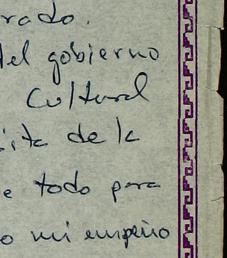 rado.
del gobierno
Cultural
ita de la
e todo para
o mi empeño